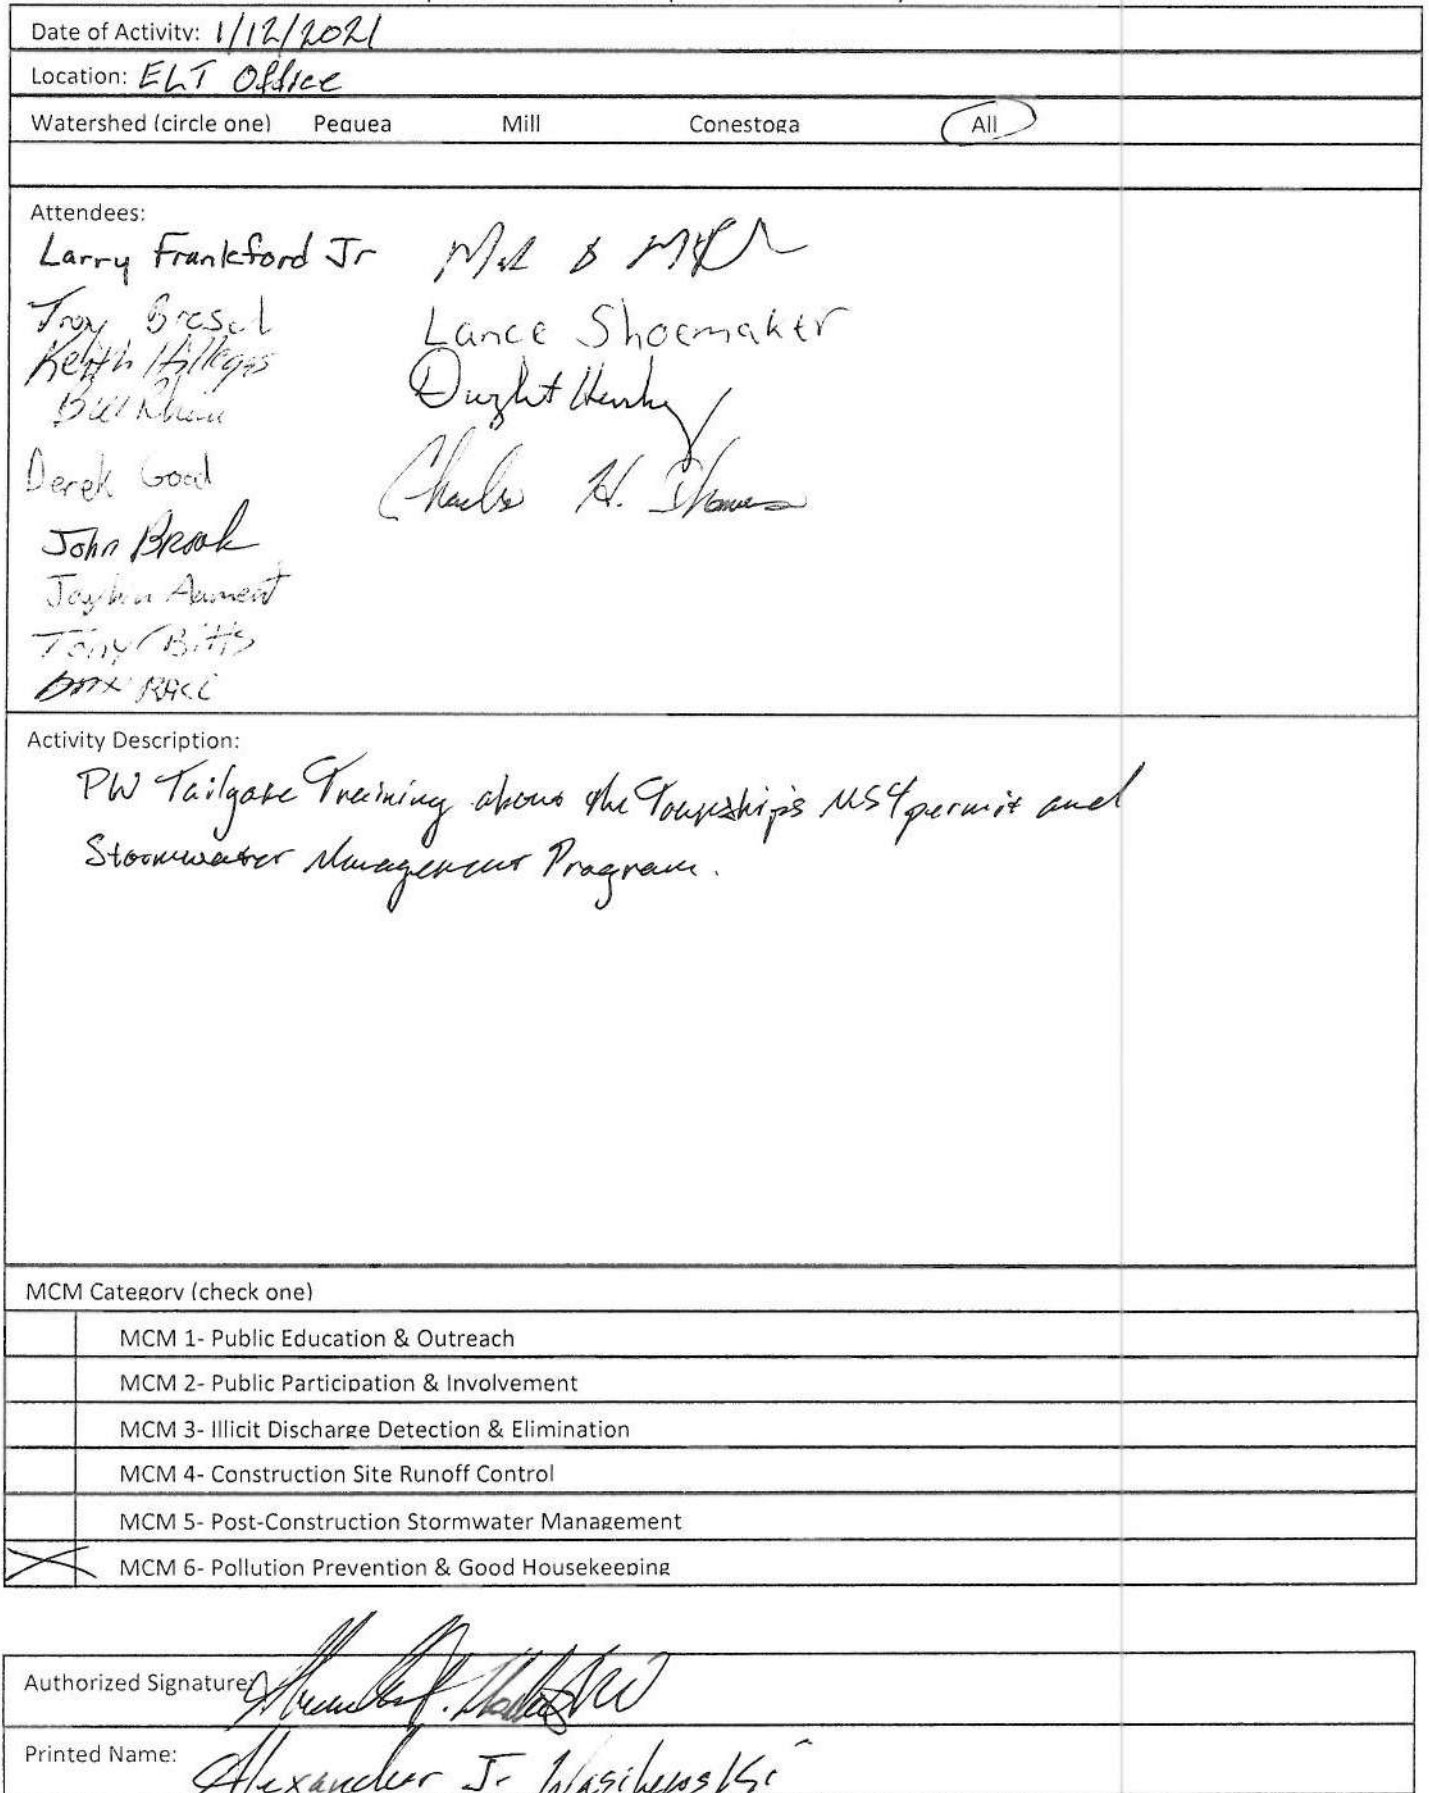 Date of Activity: 1/12/2021
Location: ELT Office
Watershed (circle one) Pequea Mill Conestoga All
Attendees:
Larry Frankford Jr
Troy
Keith Hillegas
Bill
Derek Good
John Brook
Jaylin Aument
Tony Bitts
Lance Shoemaker
Dwight Hershey
Charles H. Thomas
Activity Description:
PW Tailgate Training about the Township's MS4 permit and
Stormwater Management Program.
MCM Category (check one)
MCM 1- Public Education & Outreach
MCM 2- Public Participation & Involvement
MCM 3- Illicit Discharge Detection & Elimination
MCM 4- Construction Site Runoff Control
MCM 5- Post-Construction Stormwater Management
MCM 6- Pollution Prevention & Good Housekeeping
Authorized Signature:
Printed Name: Alexander J. Wasilewski